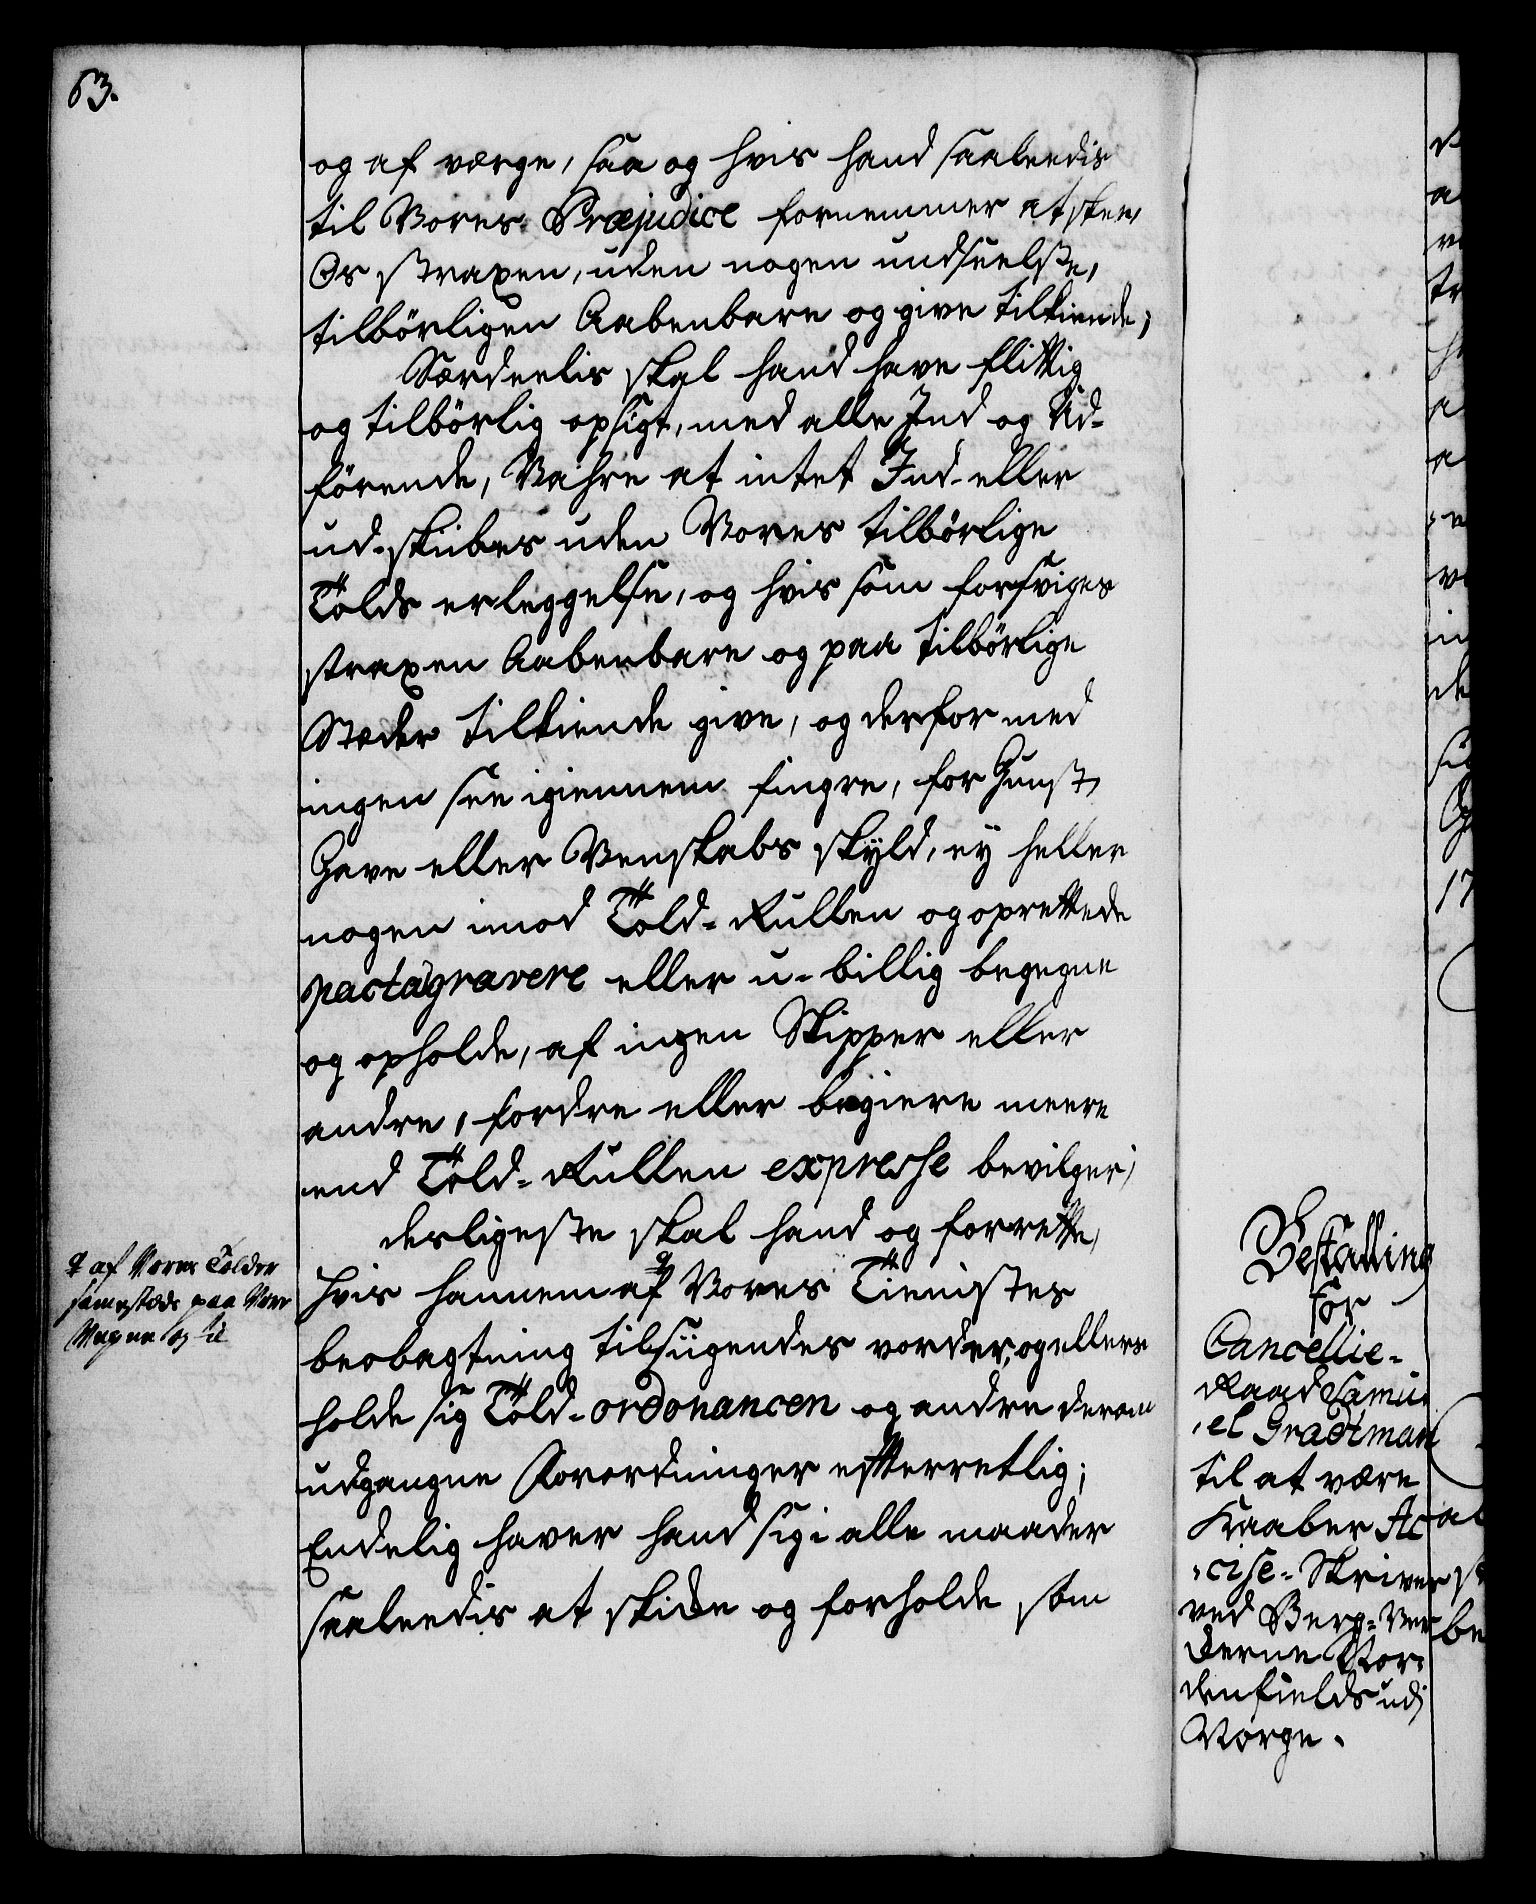 63.
og af værge, saa og hvis hand saaleedis
til Vores Præjudice fornemmer at skee,
Os straxen, uden nogen undseelse,
tilbörligen Aabenbare og give tilkiende;
Særdeelis skal hand have flittig
og tilbörlig opsigt, med alle Ind og Ud-
förende, Vahre at intet Ind- eller
ud-skibes uden Vores tilbörlige
Tolds erleggelse, og hvis som forsviges
straxen Aabenbare og paa tilbörlige
Stæder tilkiende give, og derfor med
ingen see igiennem fingre, for Gunst,
Gave eller Venskabs skyld, ey heller
nogen imod Told-Rullen og oprettede
pacta gravere eller u-billig begegne
og opholde, af ingen Skipper eller
andre, fordre eller begiere meere
end Told-Rullen expresse bevilger;
desligeste skal hand og forrette,
hvis hannem af Vores Tienistes
beobagtning tilsiigendes vorder, og ellers
holde sig Told-ordonancen og andre derom
udgangne Forordninger efterretlig;
Endelig haver hand sig i alle maader
saaleedis at skicke og forholde som
af Vores Tolder
samestæds paa Vore
Vegne og til
Bestalling
for
Cancellie-
Raad Samu-
el Gradtman
til at være
Kaaber Ac-
cise-Skriver
ved Berg-Ver-
kerne Nor-
denfields udj
Norge.